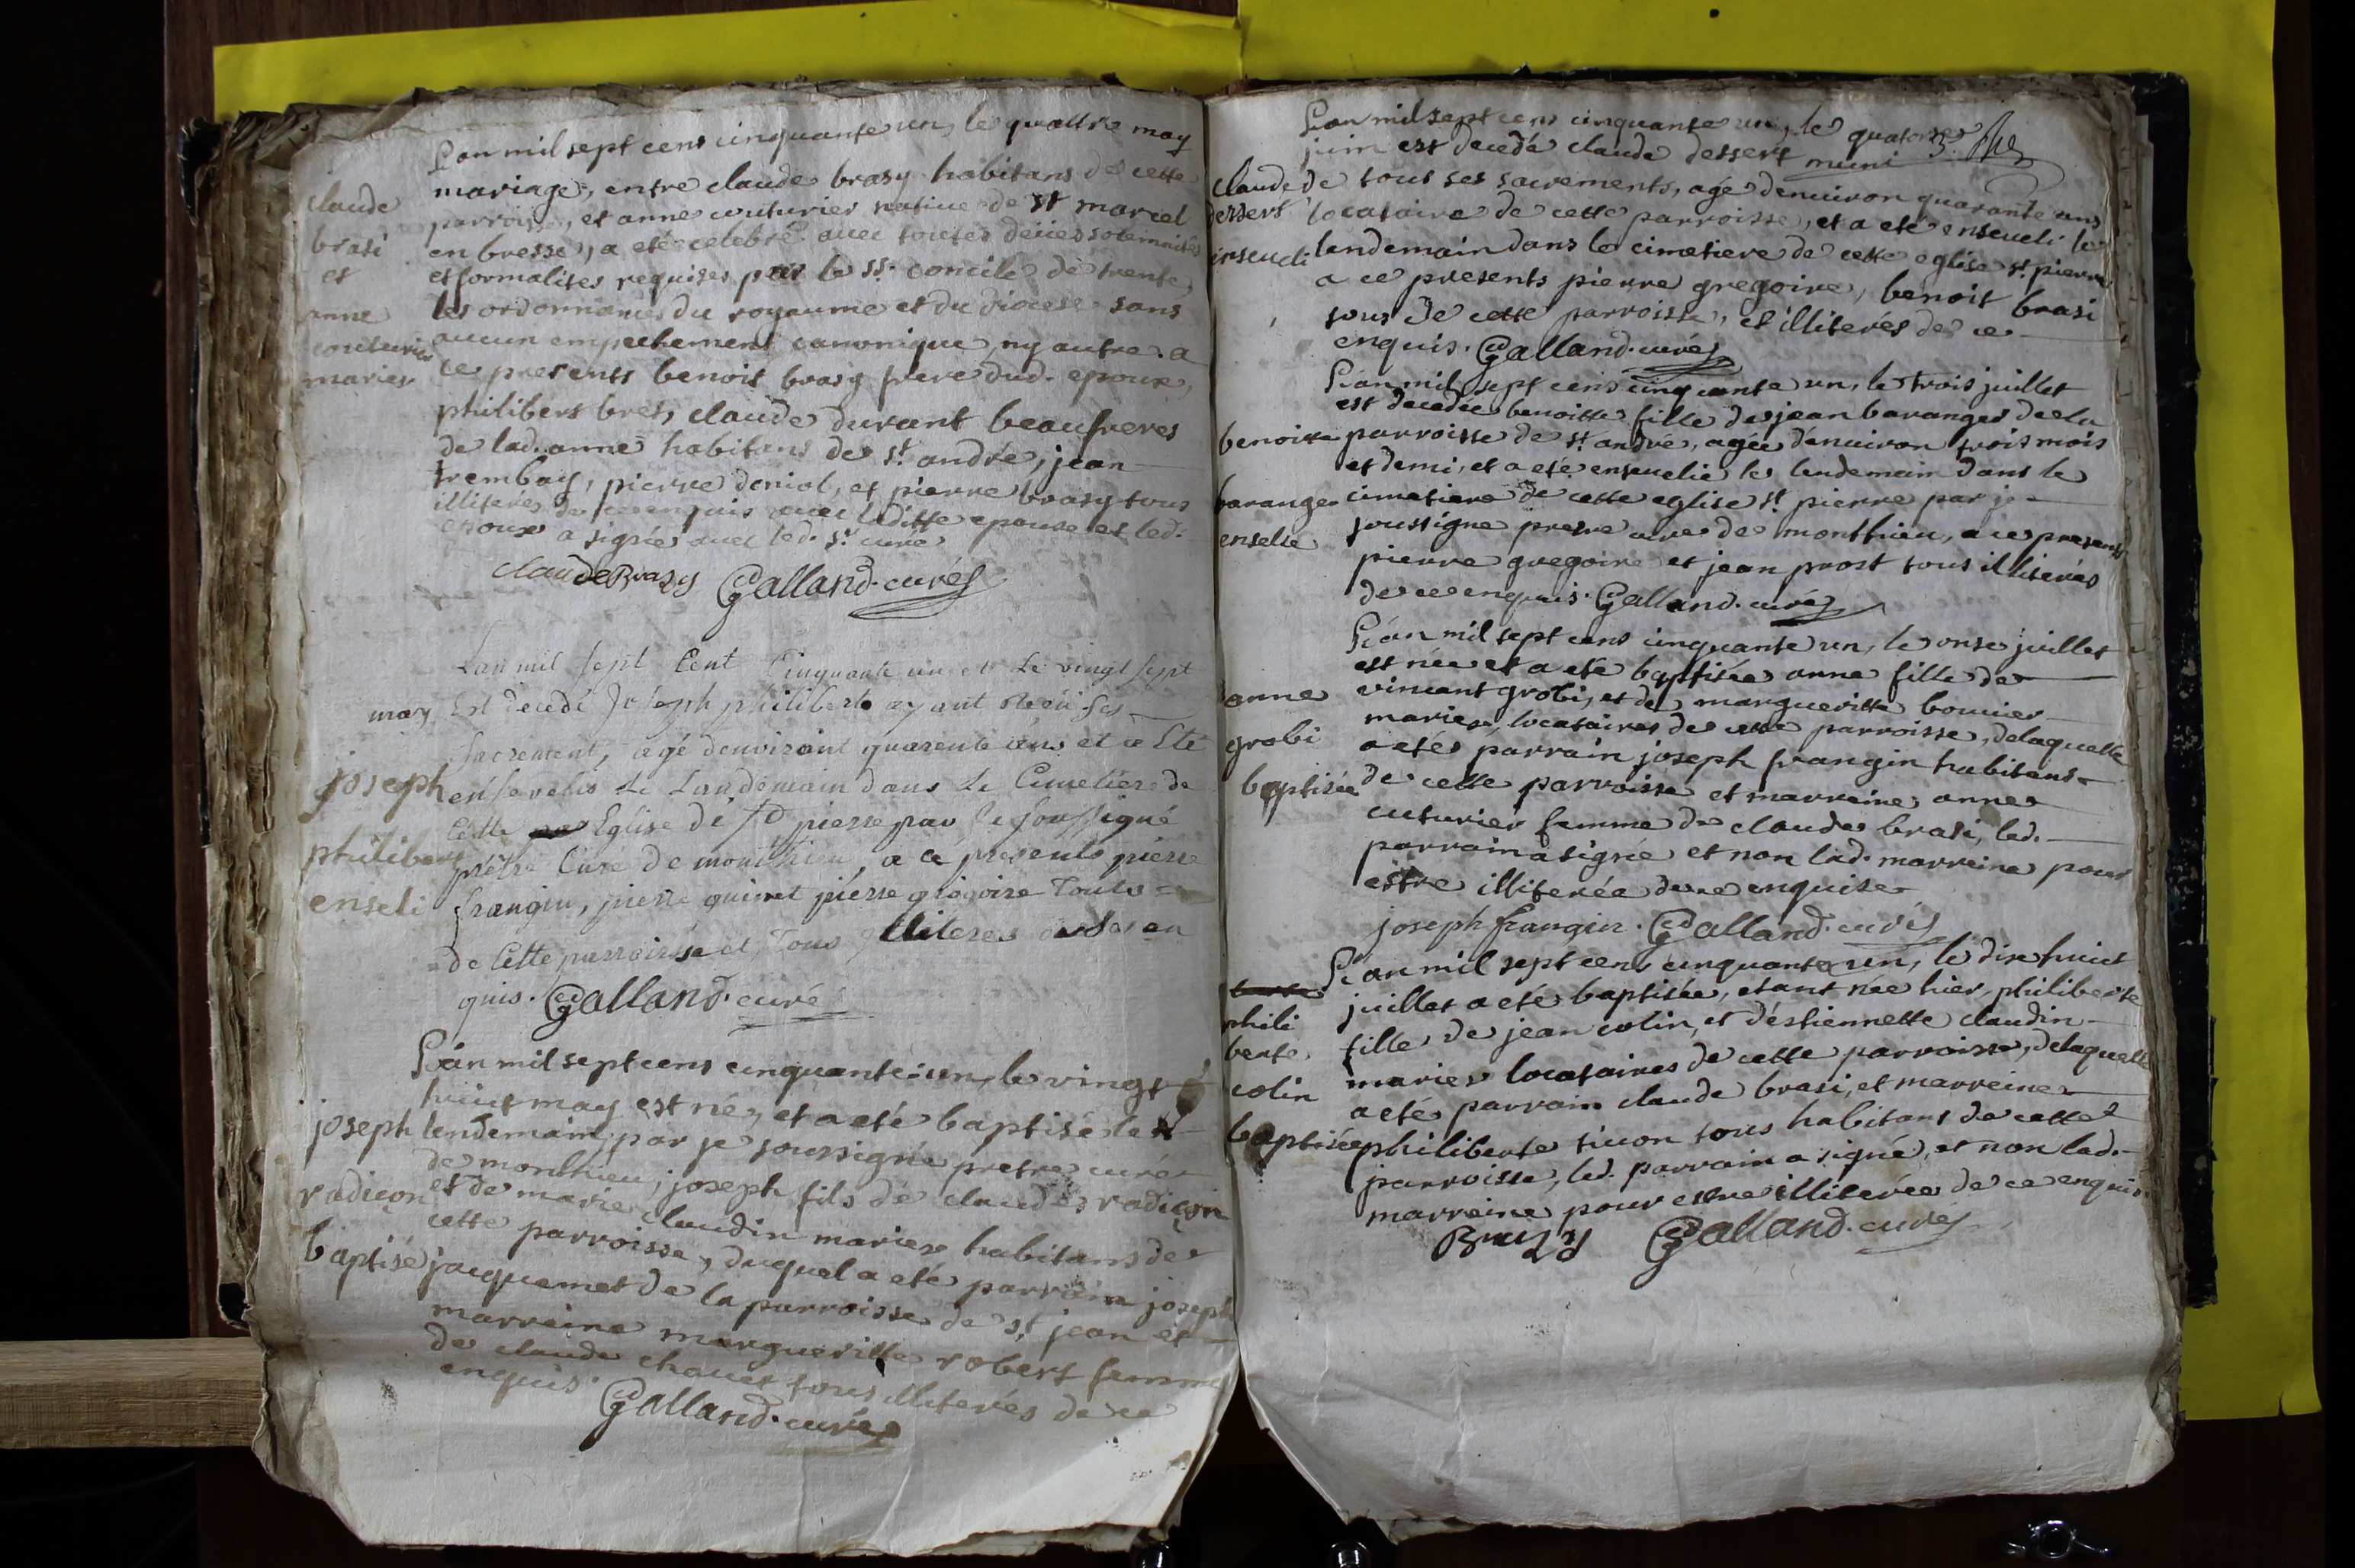 L'an mil sept cens cinquante un, le quattre may
mariage, entre claude brasy habitans de cette
parroisse, et anne couturier native de st marcel
en bresse, a eté celebré avec toutes deües solemnités
et formalites requises par le st. concile de trente,
les ordonnances du royaume et du diocese sans
aucun empechement canonique, ny autre. a
ce presents benoit brasy frere dud. epoux,
philibert bret, claude durant beaufreres
de lad. anne habitans de st. andré, jean
trembay, pierre doniol, et pierre brasy tous
illiterés de ce enquis avec laditte epouse et led.
epoux a signé avec led. sr. curé
claude
brasi
et
anne
couturier
mariés
claude Brasy Galland. curé
Lan mil sept Cent Cinquante un et le vingt sept
may Est decedé Joseph philibert ayant Reçu ses
sacrement, agé denviront quarente ans et a Eté
ensevelis Le Landemain dans Le Cimetiere de
Cette Eglise de st pierre par Je soussigné
prêtre Curé de monthieu, a ce présents pierre
frangin, pierre guivet pierre gregoire Touts
de Cette parroisse et Tous illiteres de ce en
quis. Galland. curé
joseph
philibert
enseli
L'an mil sept cens cinquante un, le vingt
huict may est né, et a eté baptisé le
lendemain, par je soussigné pretre curé
de monthieu, joseph fils de claude radiçon
et de marie claudin mariés habitans de
cette parroisse, duquel a eté parrain joseph
jacquemet de la parroisse de st jean et
marreine margueritte robert femme
de claude chanet tous illiterés de ce
enquis.
Galland. curé
joseph
radiçon
baptisé
L'an mil sept cens cinquante un, le quatorse
juin est decedé claude dessert muni
de tous ses sacrements, agé denuiron quarante ans
locataire de cette parroisse, et a eté enseueli le
lendemain dans le cimetiere de cette eglise st. pierre
a ce presents pierre gregoire, benoit brasi
tous de cette parroisse, et illiterés de ce
enquis. Galland. curé
claude
dessert
enseueli
L'an mil sept cens cinquante un, le trois juillet
est decedée benoitte fille de jean baranger de la
parroisse de st. andré, agée denuiron trois mois
et demi, et a eté enseuelie le lendemain dans le
cimetiere de cette eglise st. pierre par je
soussigné pretre curé de monthieu, a ce presents
pierre gregoire et jean prost tous illiterés
de ce enquis. Galland. curé
benoitte
baranger
enselie
L'an mil sept cens cinquante un, le onse juillet
est née et a eté baptisée anne fille de
vincent grobi, et de margueritte bouuier
mariés, locataires de cette parroisse, delaquelle
a eté parrain joseph frangin habitant
de cette parroisse et marreine anne
cuturier femme de claude brasi, led.
parrain a signé et non lad. marreine pour
estre illiterée de ce enquise
joseph frangin. Galland. curé
anne
grobi
baptisée
L'an mil sept cens cinquante un, le dix huict
juillet a eté baptisée, etant née hier, philiberte
fille de jean colin, et d'estiennette claudin
mariés locataires de cette parroisse, delaquelle
a eté parrain claude brasi, et marreine
philiberte sicon tous habitant de cette
parroisse, led. parrain a signé, et non lad.
marreine pour estre illiterée de ce enquis.
Brasy Galland. curé
phili
berte
colin
baptisée